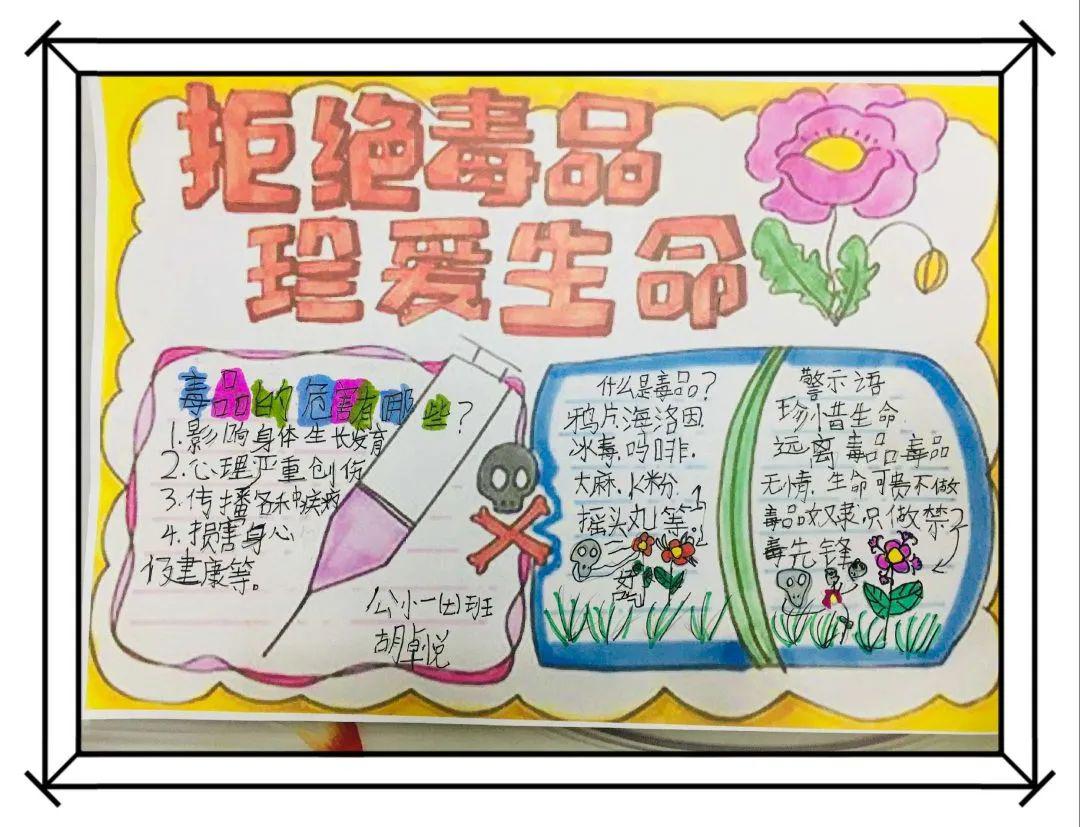 拒绝毒品
珍爱生命
毒品的危害有哪些?
1.影响身体生长发育
2.心理严重创伤
3.传播各种疾病
4.损害身心
健康等。
公小一(4)班
胡卓悦
什么是毒品?
鸦片海洛因
冰毒.吗啡.
大麻.K粉.
摇头丸等。
好吃
警示语
珍惜生命.
远离毒品毒品
无情.生命可贵不做
毒品奴隶只做禁
毒先锋